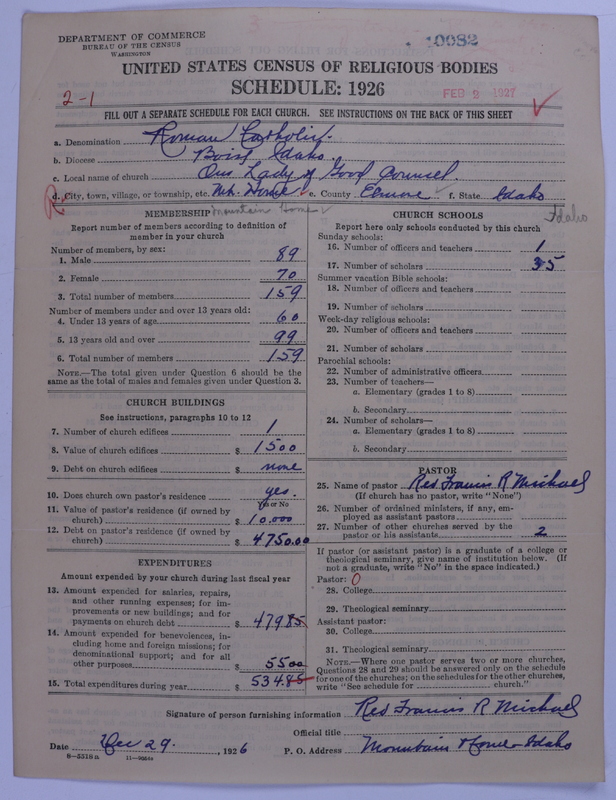 DEPARTMENT OF COMMERCE
BUREAU OF THE CENSUS
WASHINGTON
10082
UNITED STATES CENSUS OF RELIGIOUS BODIES
SCHEDULE: 1926
2-1
FEB 2 1927
FILL OUT A SEPARATE SCHEDULE FOR EACH CHURCH. SEE INSTRUCTIONS ON THE BACK OF THIS SHEET
a. Denomination Roman Catholic.
b. Diocese Boise, Idaho.
c. Local name of church Our Lady of Good Counsel
d. City, town, village, or township, etc. Mt. Home e. County Elmore f. State Idaho
R
Mountain Home
Idaho
MEMBERSHIP
Report number of members according to definition of member in your church
Number of members, by sex:
1. Male 89
2. Female 70
3. Total number of members 159
Number of members under and over 13 years old:
4. Under 13 years of age 60
5. 13 years old and over 99
6. Total number of members 159
NOTE.—The total given under Question 6 should be the
same as the total of males and females given under Question 3.
CHURCH BUILDINGS
See instructions, paragraphs 10 to 12
7. Number of church edifices 1
8. Value of church edifices $ 1500
9. Debt on church edifices $ none
10. Does church own pastor's residence yes.
Yes or No
11. Value of pastor's residence (if owned by
church) $ 10,000
12. Debt on pastor's residence (if owned by
church) $ 4750.00
EXPENDITURES
Amount expended by your church during last fiscal year
13. Amount expended for salaries, repairs,
and other running expenses; for im-
provements or new buildings; and for
payments on church debt $ 4798
14. Amount expended for benevolences, in-
cluding home and foreign missions; for
denominational support; and for all
other purposes $ 5500
15. Total expenditures during year $ 534.85
CHURCH SCHOOLS
Report here only schools conducted by this church
Sunday schools:
16. Number of officers and teachers 1
17. Number of scholars 35
Summer vacation Bible schools:
18. Number of officers and teachers
19. Number of scholars
Week-day religious schools:
20. Number of officers and teachers
21. Number of scholars
Parochial schools:
22. Number of administrative officers
23. Number of teachers—
a. Elementary (grades 1 to 8)
b. Secondary
24. Number of scholars—
a. Elementary (grades 1 to 8)
b. Secondary
PASTOR
25. Name of pastor Rev Francis R Michael
(If church has no pastor, write "None")
26. Number of ordained ministers, if any, em-
ployed as assistant pastors
27. Number of other churches served by the
pastor or his assistants 2
If pastor (or assistant pastor) is a graduate of a college or
theological seminary, give name of institution below. (If
not a graduate, write "No" in the space indicated.)
Pastor: 0
28. College
29. Theological seminary
Assistant pastor:
30. College
31. Theological seminary
NOTE.—Where one pastor serves two or more churches,
Questions 28 and 29 should be answered only on the schedule
for one of the churches; on the schedules for the other churches,
write "See schedule for church."
Signature of person furnishing information Rev Francis R Michael
Official title
Date Dec 29, 1926 P. O. Address Mountain Home Idaho
8—5518a